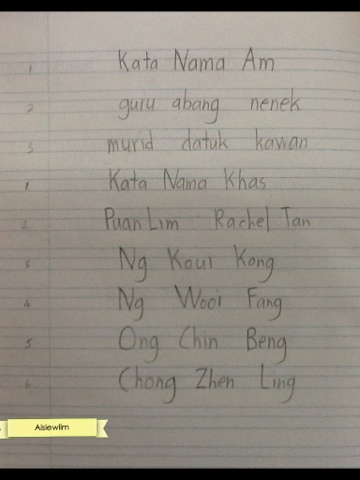 1 Kata Nama Am
2 guru abang nenek
3 murid datuk kawan
1 Kata Nama Khas
2 Puan Lim Rachel Tan
3 Ng Koui Kong
4 Ng Wooi Fang
5 Ong Chin Beng
6 Chong Zhen Ling
Aisiewlim